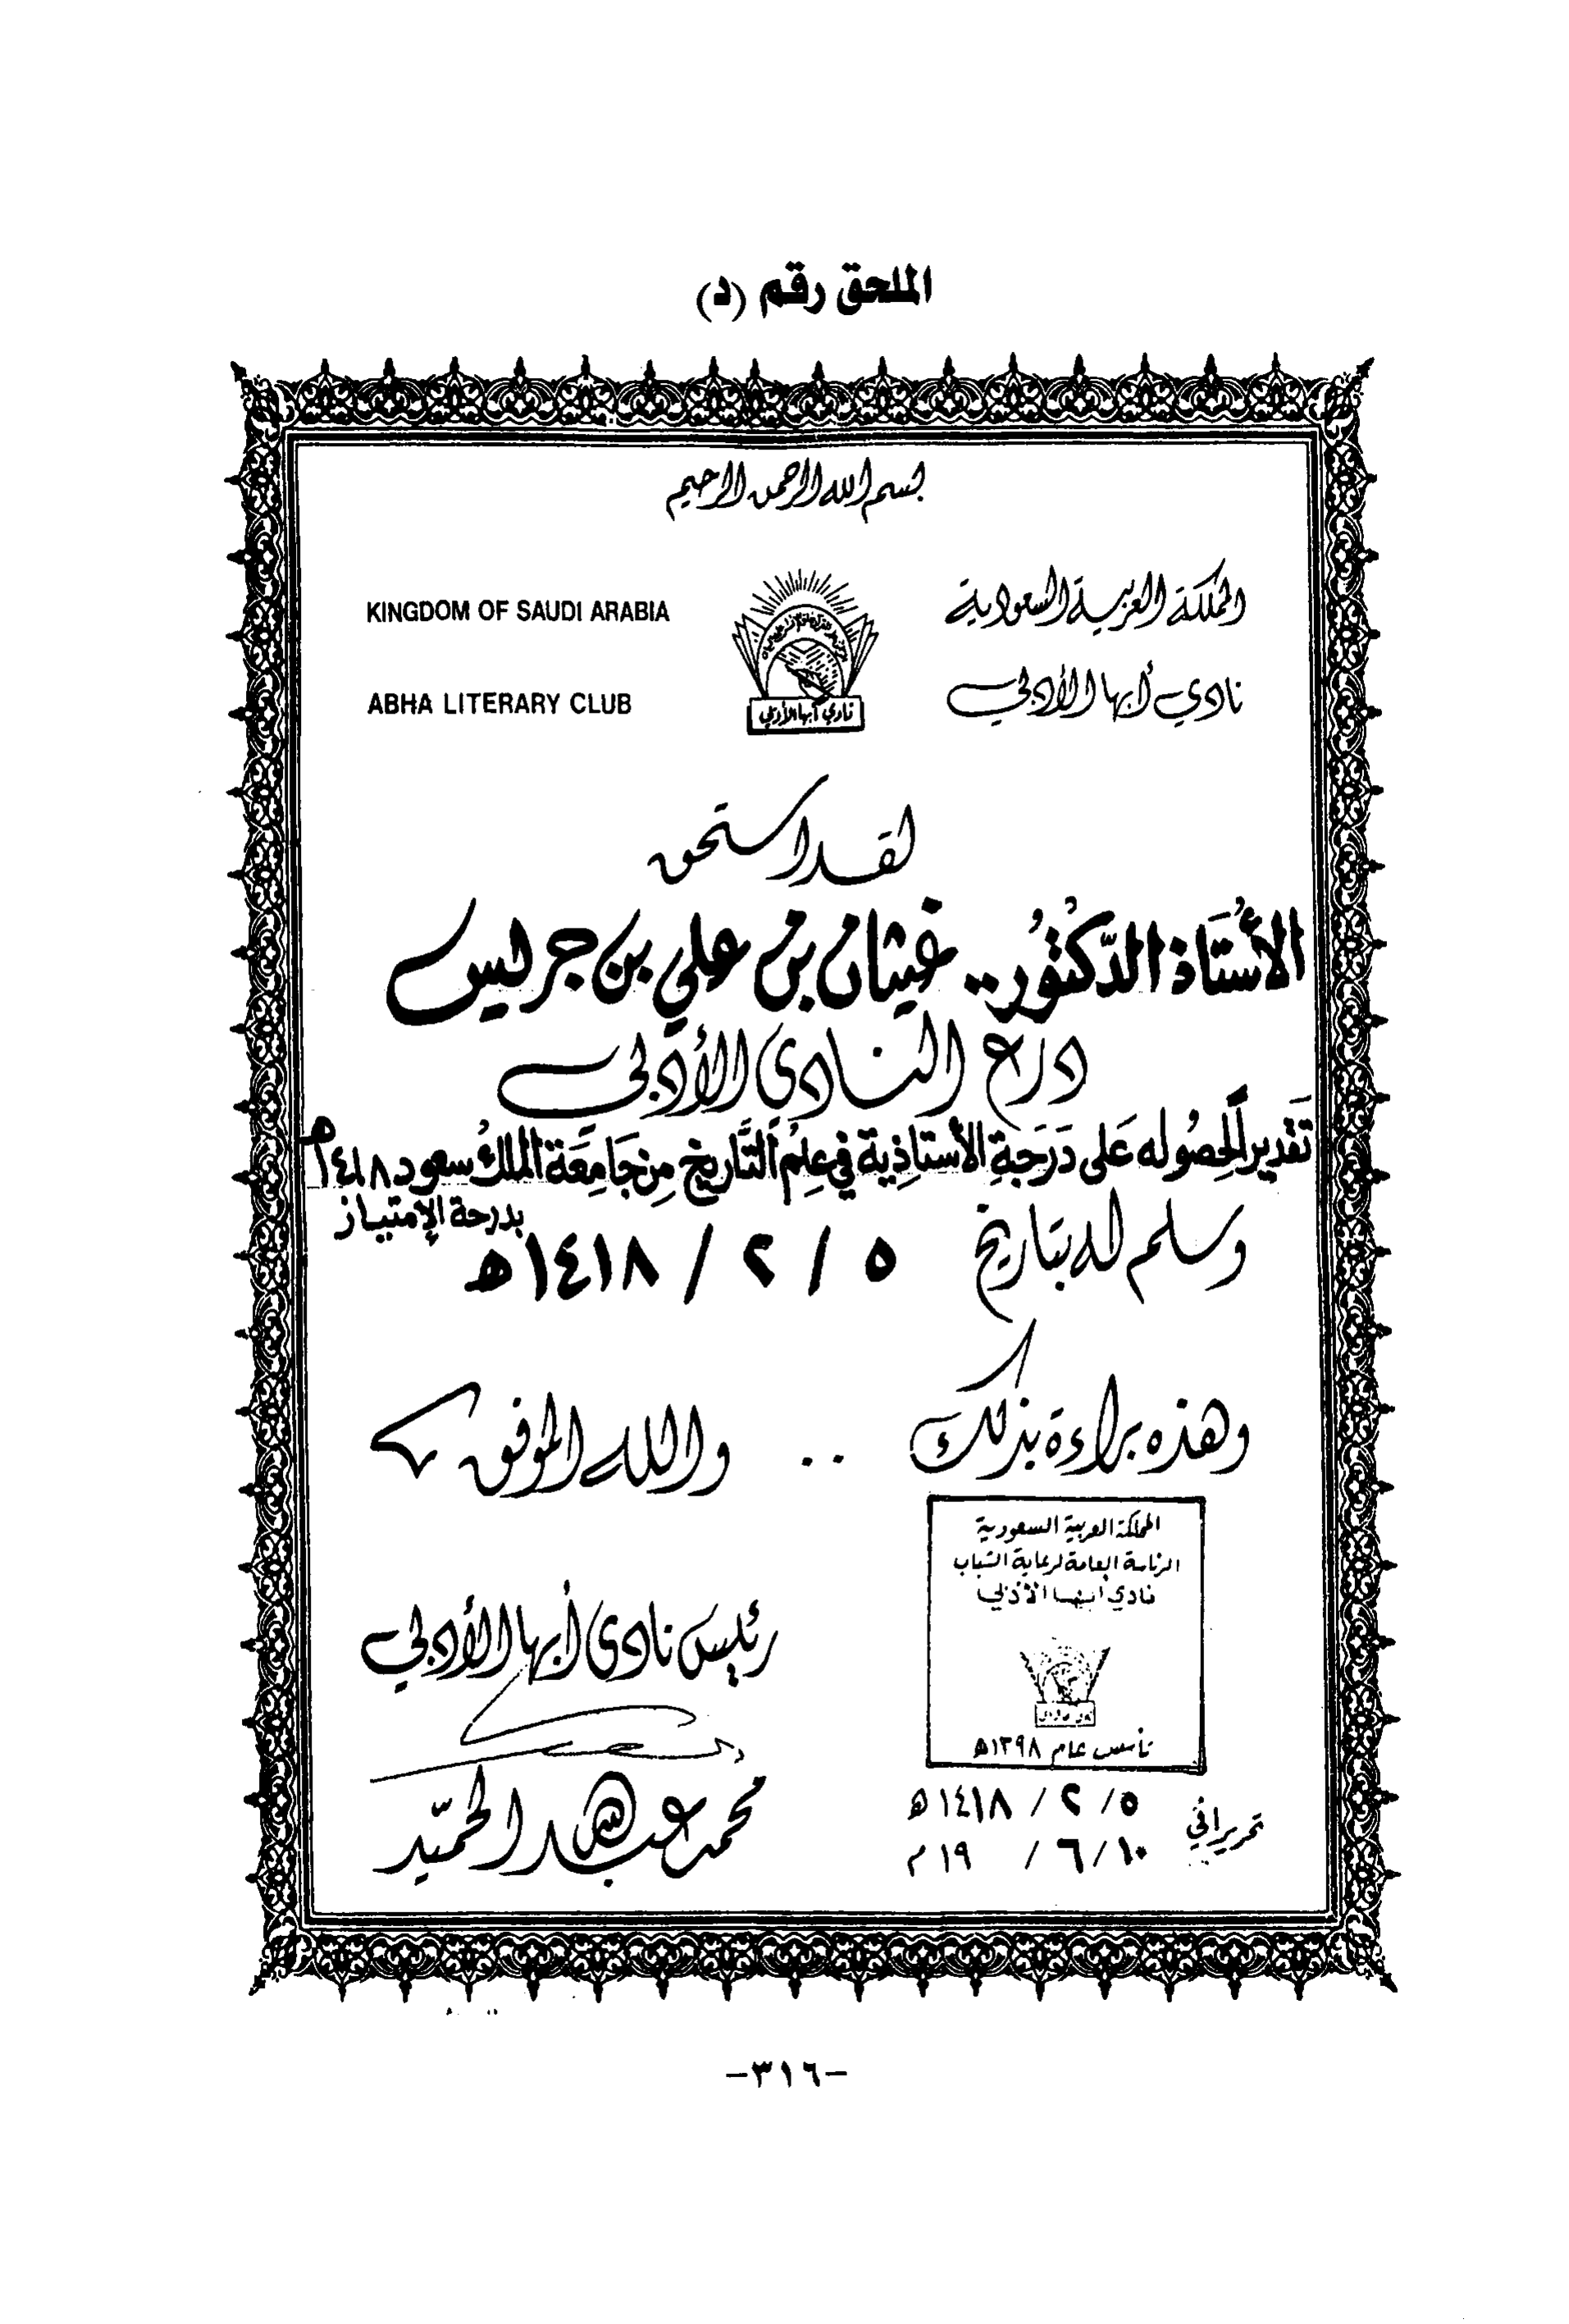 الملحق رقم (د)
بسم الله الرحمن الرحيم
المملكة العربية السعودية
KINGDOM OF SAUDI ARABIA
نادي أبها الأدبي
ABHA LITERARY CLUB
نادي أبها الأدبي
لقد استحق
الأُستَاذ الدّكتُور.. غيثان بن علي بن جريس
درع النادي الأدبي
تَقديراً لحصُوله عَلى دَرَجَةِ الأستاذِية في عِلمِ التَّاريخ مِن جَامِعَة الملك سعود ١٤١٨ه
بدرجة الإمتياز
وسلم له بتاريخ ٥ / ٢ / ١٤١٨ه
وهذه براءة بذلك .. والله الموفق
المملكة العربية السعودية
الرئاسة العامة لرعاية الشباب
نادي أبها الأدبي
تأسس عام ١٣٩٨ه
رئيس نادي أبها الأدبي
محمد عبدالله الحميّد
تحريراً في ٥ / ٢ / ١٤١٨ ه
١٠ / ٦ / ١٩ م
-٣١٦-